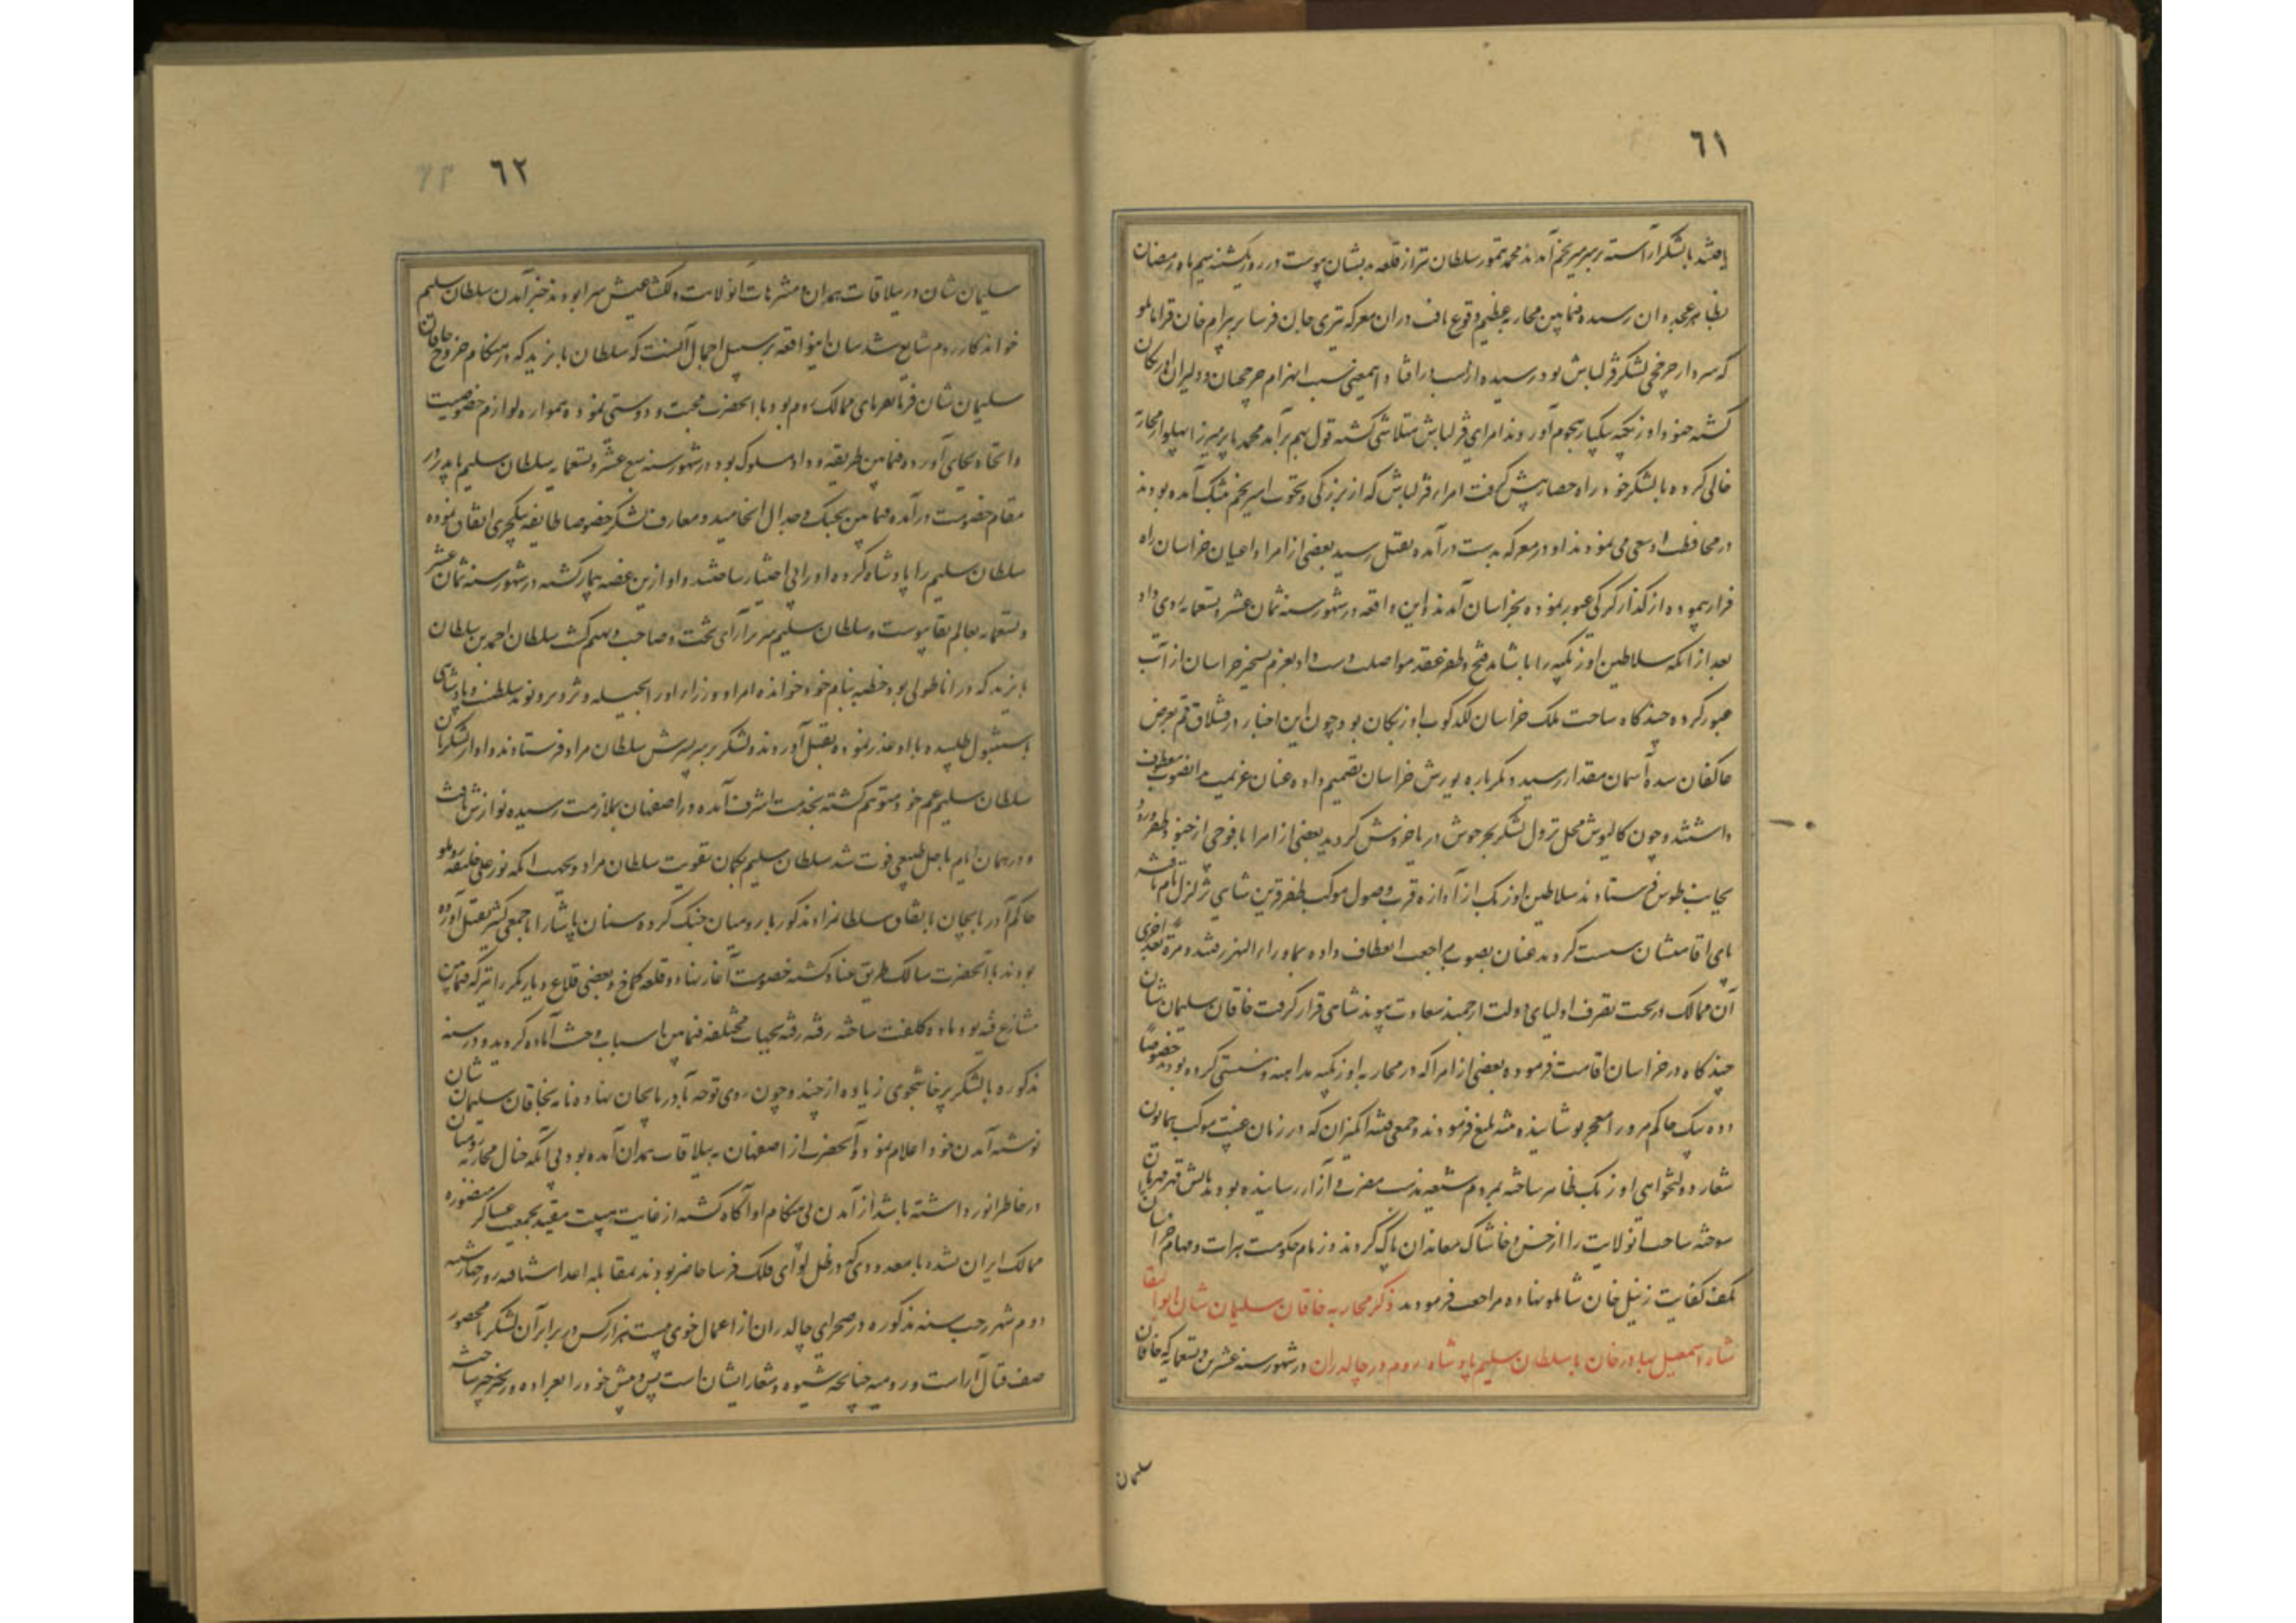 ٦١
یافتند با لشکر آراسته بر سر میر نجم آمدند محمد تیمور سلطان نیز از قلعه بدیشان پیوست در روز یکشنبه سیم ماه رمضان
بظاهر غجدوان رسیده فیمابین محاربه عظیم وقوع یافت در آن معرکه تیری جان فرسا بر بیرام خان قرامانلو
که سردار چرخچی لشکر قزلباش بود رسیده از اسب در افتاد و اینمعنی سبب انهزام چرخچیان و دلیران اوزبکان
گشته جنود اوزبکیه یکبار هجوم آوردند امرای قزلباش متلاشی گشته قول بهم برآمد محمد بابر میرزا پهلو از محاربه
خالی کرده با لشکر خود راه حصار پیش گرفت امراء قزلباش که از بزرگی و نخوت امیر نجم بتنک آمده بودند
در محافظت او سعی می نمودند او در معرکه بدست درآمده بقتل رسید بعضی از امرا و اعیان خراسان راه
فرار پیموده از گذار کرکی عبور نموده بخراسان آمدند و این واقعه در شهور سنه ثمان عشر و تسعمایه روی داد
بعد از آنکه سلاطین اوزبکیه را با شاهد فتح و ظفر عقد مواصلت دست داد بعزم تسخیر خراسان از آب
عبور کرده چند گاه ساحت ملک خراسان لگدکوب اوزبکان بود چون این اخبار در قشلاق قم بعرض
عاکفان سده آسمان مقدار رسید دیگر باره یورش خراسان تصمیم داده عنان عزیمت بدانصوب معطوف
داشتند و چون کالپوش محل نزول لشکر بحر جوش دریا خروش گردید بعضی از امرا با فوجی از جنود ظفر ورود
بجانب طوس فرستادند سلاطین اوزبک از آوازه قرب وصول موکب ظفر قرین شاهی تزلزل تمام یافته
پای اقامتشان سست گردید عنان بصوب مراجعت انعطاف داده بماوراء النهر رفتند و مرة بعد اخری
آن ممالک در تحت تصرف اولیای دولت ارجمند سعادت پیوند شاهی قرار گرفت خاقان سلیمان شان
چند گاه در خراسان اقامت فرموده بعضی از امرا که در محاربه اوزبکیه مداهنه و سستی کرده بودند خصوصاً
دده بیک حاکم مرو را معجر پوشانیده تنبیه بلیغ فرمودند و جمعی فتنه انگیزان که در زمان غیبت موکب همایون
شعار دولتخواهی اوزبک ظاهر ساخته بمردم شیعه مذهب مضرت و آزار رسانیده بودند بآتش قهر قهرمان
سوخته ساحت آنولایت را از خس و خاشاک معاندان پاک کردند و زمام حکومت هرات و مهام خراسان
بکف کفایت زینل خان شاملو نهاده مراجعت فرمودند ذکر محاربه خاقان سلیمان شان ابوالبقا
شاه اسمعیل بهادرخان با سلطان سلیم پادشاه روم در چالدران در شهور سنه عشرین و تسعمایه که خاقان
سلیمان
٦٢
سلیمان شان در ییلاقات همدان و متنزهات آنولایت دلکشا عیش سرا بودند خبر آمدن سلطان سلیم
خواندکار روم شایع شد بیان اینواقعه بر سبیل اجمال آنست که سلطان بایزید که در هنگام خروج خاقان
سلیمان شان فرمانفرمای ممالک روم بود با آنحضرت محبت و دوستی نموده همواره لوازم خصوصیت
و اتحاد بجای آورده فیمابین طریقه وداد مسلوک بود در شهور سنه سبع عشر و تسعمایه سلطان سلیم با پدر در
مقام خصومت درآمده فیمابین بجنک و جدال انجامید و معارف لشکر خصوصا طایفه ینکچری اتفاق نموده
سلطان سلیم را پادشاه کرده او را بی اختیار ساختند و او ازین غصه بیمار گشته در شهور سنه ثمان عشر
و تسعمایه بعالم بقا پیوست و سلطان سلیم سریر آرای تخت و صاحب دیهیم گشت سلطان احمد بن سلطان
بایزید که در اناطولی بود خطبه بنام خود خوانده امرا و وزراء او را بحیله و تزویر و نوید سلطنت و پادشاهی
باستنبول طلبیده با او غدر نموده بقتل آوردند و لشکر بر سر پسرش سلطان مراد فرستادند و او از لشکر آن
سلطان سلیم عم خود متوهم گشته بخدمت اشرف آمده در اصفهان بملازمت رسیده نوازش یافت
و در همان ایام باجل طبیعی فوت شد سلطان سلیم بگمان تقویت سلطان مراد و بجهت آنکه نور علی خلیفه روملو
حاکم آذربایجان باتفاق سلطانمراد مذکور با رومیان جنک کرده سنان پاشا را با جمعی کثیر بقتل آورده
بودند با آنحضرت سالک طریق عناد گشته خصومت آغاز نهاد و قلعه کماخ و بعضی قلاع دیاربکر را نیز که فیمابین
متنازع فیه بود ماده کلفت ساخته رفته رفته بجهات مختلفه فیمابین اسباب وحشت آماده گردید و در سنه
مذکوره با لشکر پرخاشجوی زیاده از چند و چون روی توجه بآذربایجان نهاده نامه بخاقان سلیمان شان
نوشته آمدن خود اعلام نمود و آنحضرت از اصفهان به ییلاقات همدان آمده بود بی آنکه خیال محاربه رومیان
در خاطر انور داشته باشد از آمدن بی هنگام او آگاه گشته از غایت مقید بجمعیت عساکر منصوره
ممالک ایران نشده با معدودی که در ظل لوای فلک فرسا حاضر بودند بمقابله اعدا شتافته روز چهارشنبه
دوم شهر رجب سنه مذکوره در صحرای چالدران از اعمال خوی بیست هزار کس در برابر آن لشکر نامحصور
صف قتال آراست و رومیه چنانچه شیوه و شعار ایشان است پس و پیش خود را بعراده و زنجیر حیز ساخته